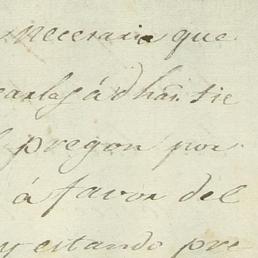 necesario que
á dhâ. tie
pregon por
á favor del
y estando pre